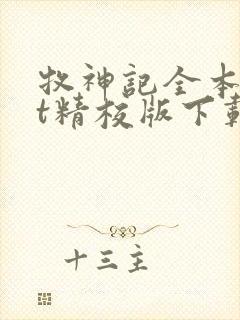 牧神記全本
t精校版下載
十三主